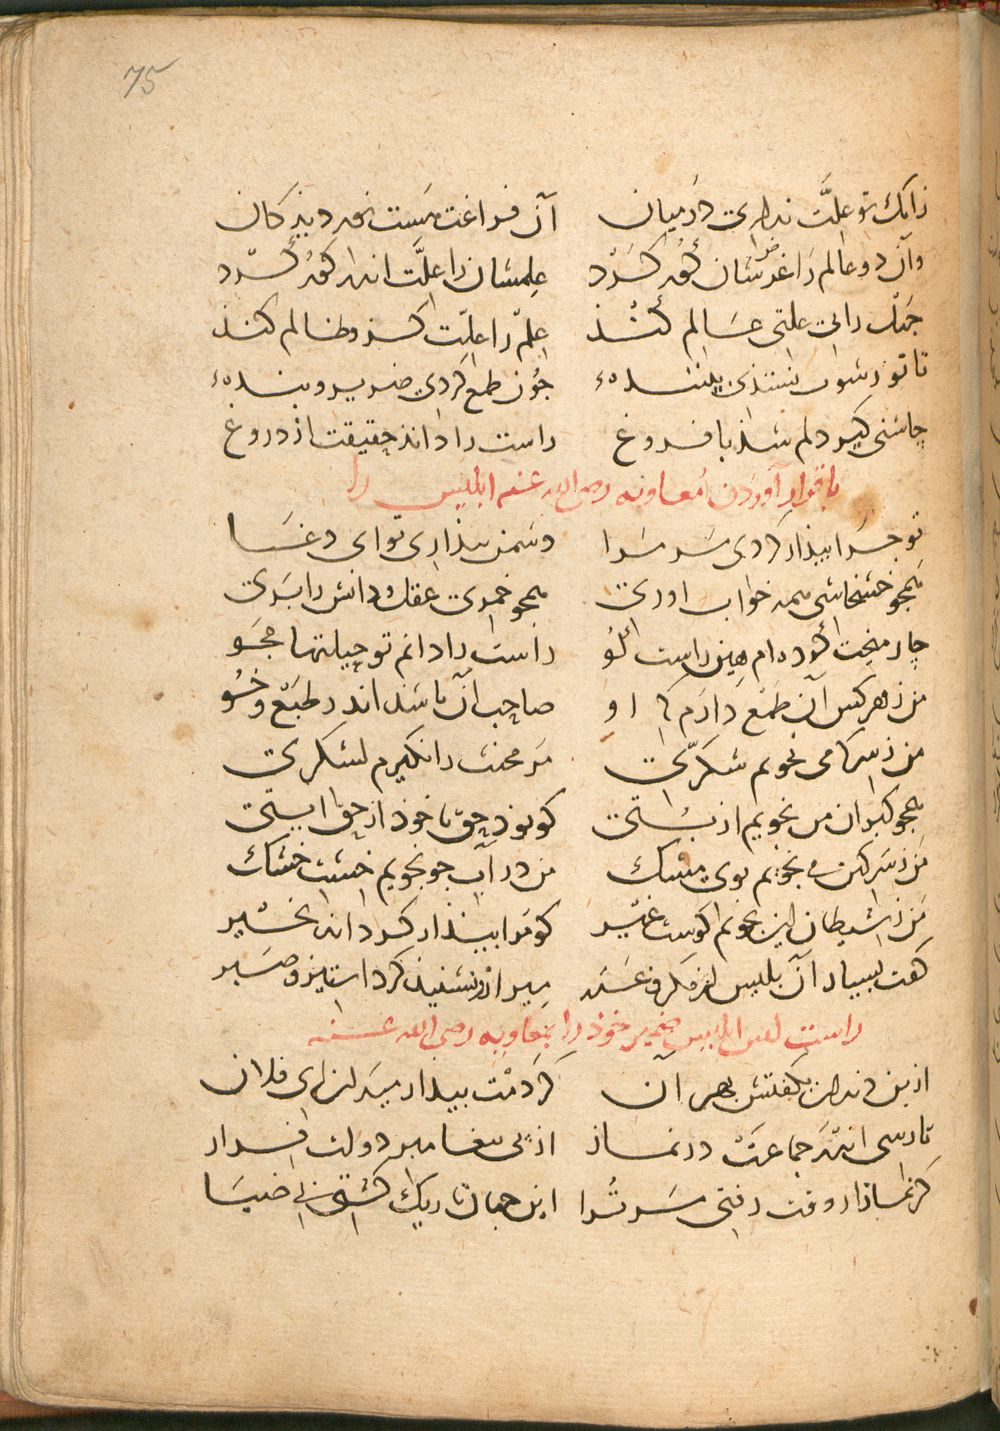 75
زانک تو علت نداری در میان آن فراغت هست نور دیذکان
وان دو عالم را غرضشان کور کرد علمشان را علت اندر کور کرد
جهل رابی علتی عالم کنذ علم را علت کژ و ظالم کنذ
تا تو رشوت نستذی بیننده‌ء جون طمع کردی ضریر و بنده‌ء
چاشنی کیر دلم شذ با فروغ راست را داند حقیقت از دروغ
باقرار آوردن معاویه رضی الله عنه ابلیس را
تو جرا بیذار کردی مر مرا دشمن بیذاری تو ای دغا
همجو خشخاشی همه خواب اوری همجو خمری عقل و دانش را بری
چار میخت کرده‌ام هین راست کو راست را دانم تو حیلتها مجو
من ز هر کس آن طمع دارم که او صاحب آن باشذ اندر طبع و خو
من ز سرکا می نجویم شکری مر مخنث را نکیرم لشکری
همجو کبران من نجویم از بتی کو بوذ حق یا خوذ از حق ایتی
من ز سرکین می نجویم بوی مشک من در آب جو نجویم خشت خشک
من ز شیطان این نجویم کوست غیر کو مرا بیذار کرداند بخیر
کفت بسیار آن بلیس از مکر و غدر میر ازو نشنیذ کرد استیز و صبر
راست کفتن ابلیس ضمیر خوذ را بمعاویه رضی الله عنه
از بن دندان بکفتش بهر آن کردمت بیدار میدان ای فلان
تا رسی اندر جماعت در نماز از پی پیغامبر دولت فراز
کر نماز از وقت رفتی مر ترا این جهان تاریک کشتی بی ضیا